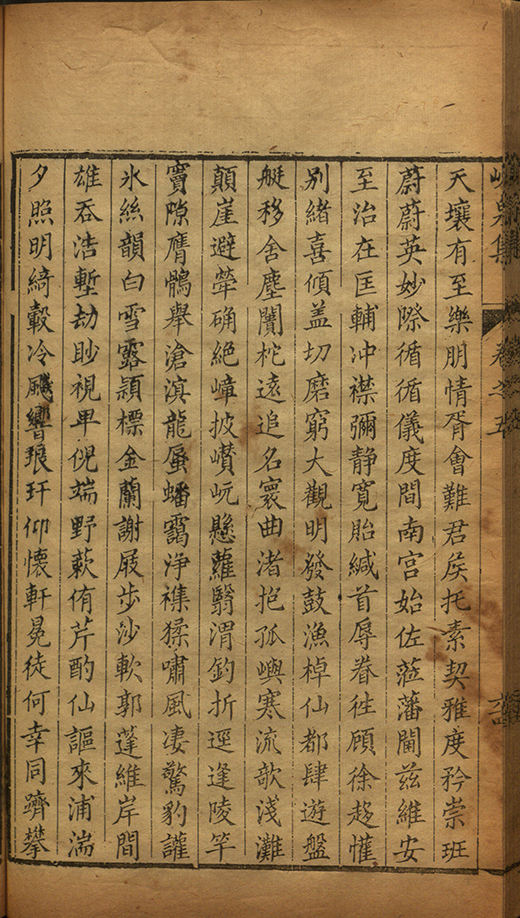 泉集
卷之五
天壤有至樂朋情胥會難君矦托素契雅度矜崇班
蔚蔚英妙際循循儀度間南宫始佐蒞藩閫兹維安
至治在匡輔冲襟彌静寛貽緘首辱眷徃顧徐趍懽
别緒喜傾盖切磨窮大觀明發鼓漁棹仙都肆遊盤
艇移舍塵闠柁遠追名寰曲渚抱孤嶼寒流歌淺灘
顛崖避犖确絶嶂披巑岏懸蘿翳渭釣折逕逢陵竿
竇隙膺鶻舉滄溟龍蜃蟠靄浄襍猱嘯風凄驚豹讙
氷絲韻白雪露頴標金蘭謝屐步沙軟郭蓬維岸間
雄吞浩塹劫眇視甲倪端野蔌侑芹酌仙謳來浦湍
夕照明綺縠冷飈響琅玕仰懷軒冕徒何幸同躋攀